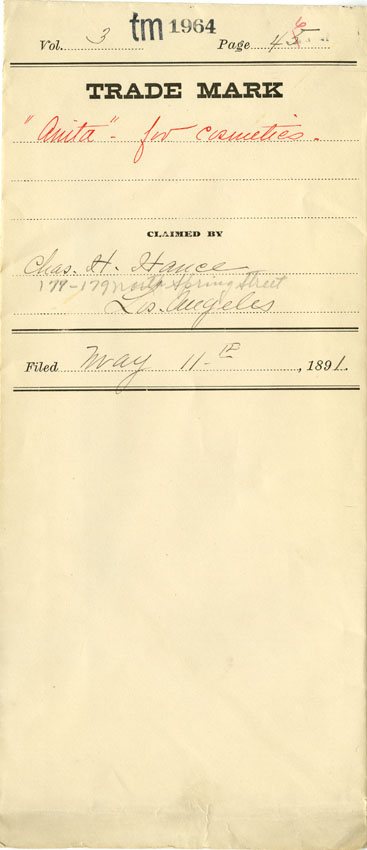 tm 1964
Vol. 3 Page 45
TRADE MARK
"Anita" - for cosmetics.
CLAIMED BY
Chas. H. Hance
177-179 North Spring Street
Los Angeles
Filed May 11th, 1891.